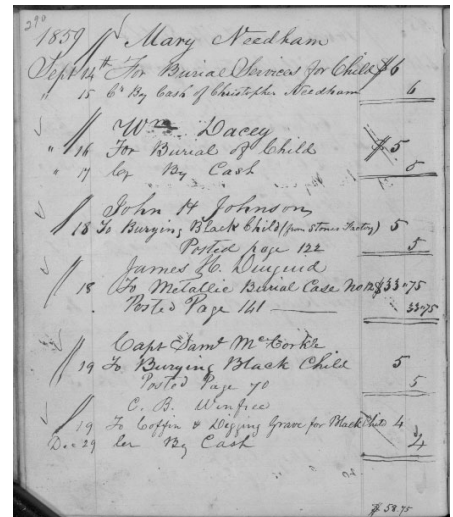 290
1859 Mary Needham
Sept 14th For Burial Services for Child $6
" 15 Cr By Cash of Christopher Needham 6
Wm Dacey
" 16 For Burial of Child $5
" 17 Cr By Cash 5
John H Johnson
18 To Burying Black Child (from Stones Factory) 5
Posted page 122 5
James H. Diuguid
18 To Metallic Burial Case No $33.75
Posted Page 141 33.75
Capt Saml McCorkle
19 To Burying Black Child 5
Posted Page 70 5
C. B. Winfree
19 To Coffin & Digging Grave for Black Child 4
Dec 29 Cr By Cash 4
$58.75